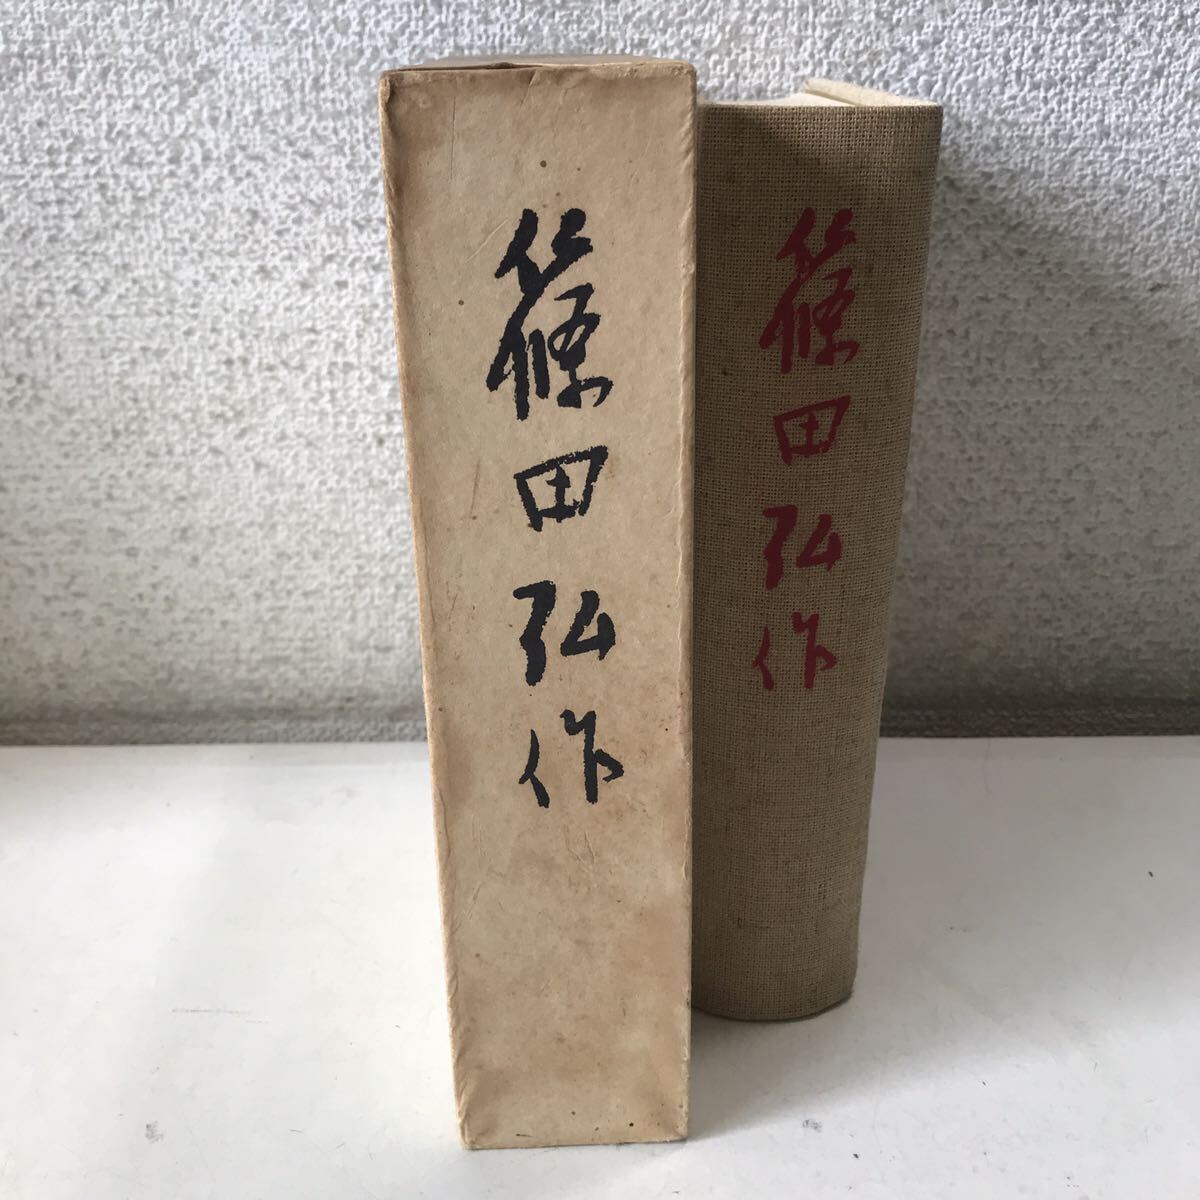 篠田弘作
篠田弘作